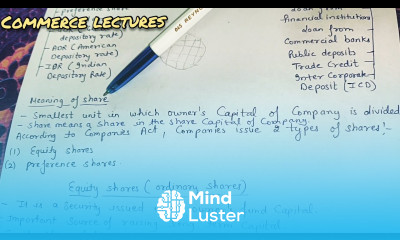 COMMERCE LECTURES
preference share
depository rate)
ADR (American
Depository Rate)
IDR (Indian
Depository Rate)
NO RETURN
loan from
financial institutions
loan from
Commercial banks
Public deposits
Trade Credit
Inter Corporate
Deposit (ICD)
Meaning of share
- Smallest unit in which owner's Capital of Company is divided
- share means a Share in the share Capital of Company.
According to Companies Act, Companies issue 2 types of shares:-
(1) Equity shares
(2) preference shares.
Equity shares (ordinary shares)
- It is a security issued
Capital.
important source of raising
capital
Mind
Luster